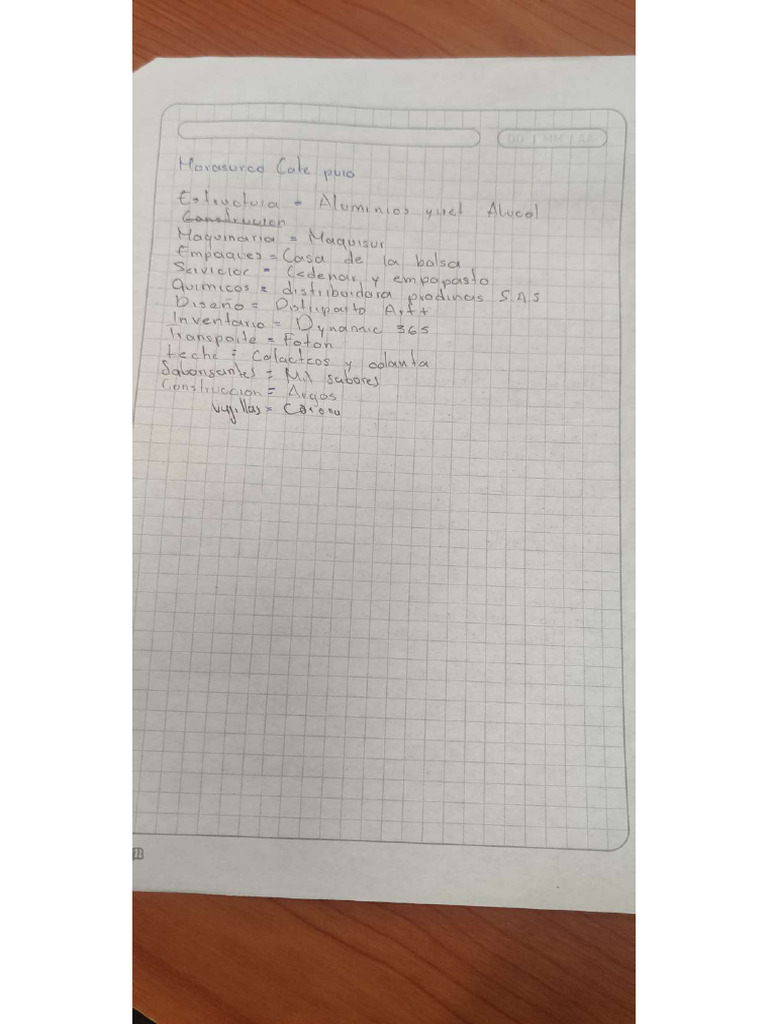 DD | MM | AA
Morasurco Cafe puro
Estructura = Aluminios yuret Alucol
Construccion
Maquinaria = Maquisur
Empaques = Casa de la bolsa
Servicios = Cedenar y empopasto
Quimicos = distribuidora prodinas S.A.S
Diseño = Distripasto Art
Inventario = Dynamic 365
Transporte = Foton
Leche = Colacteos y colanta
Saborisantes = Mil sabores
Construccion = Argos
Vajillas = Corona